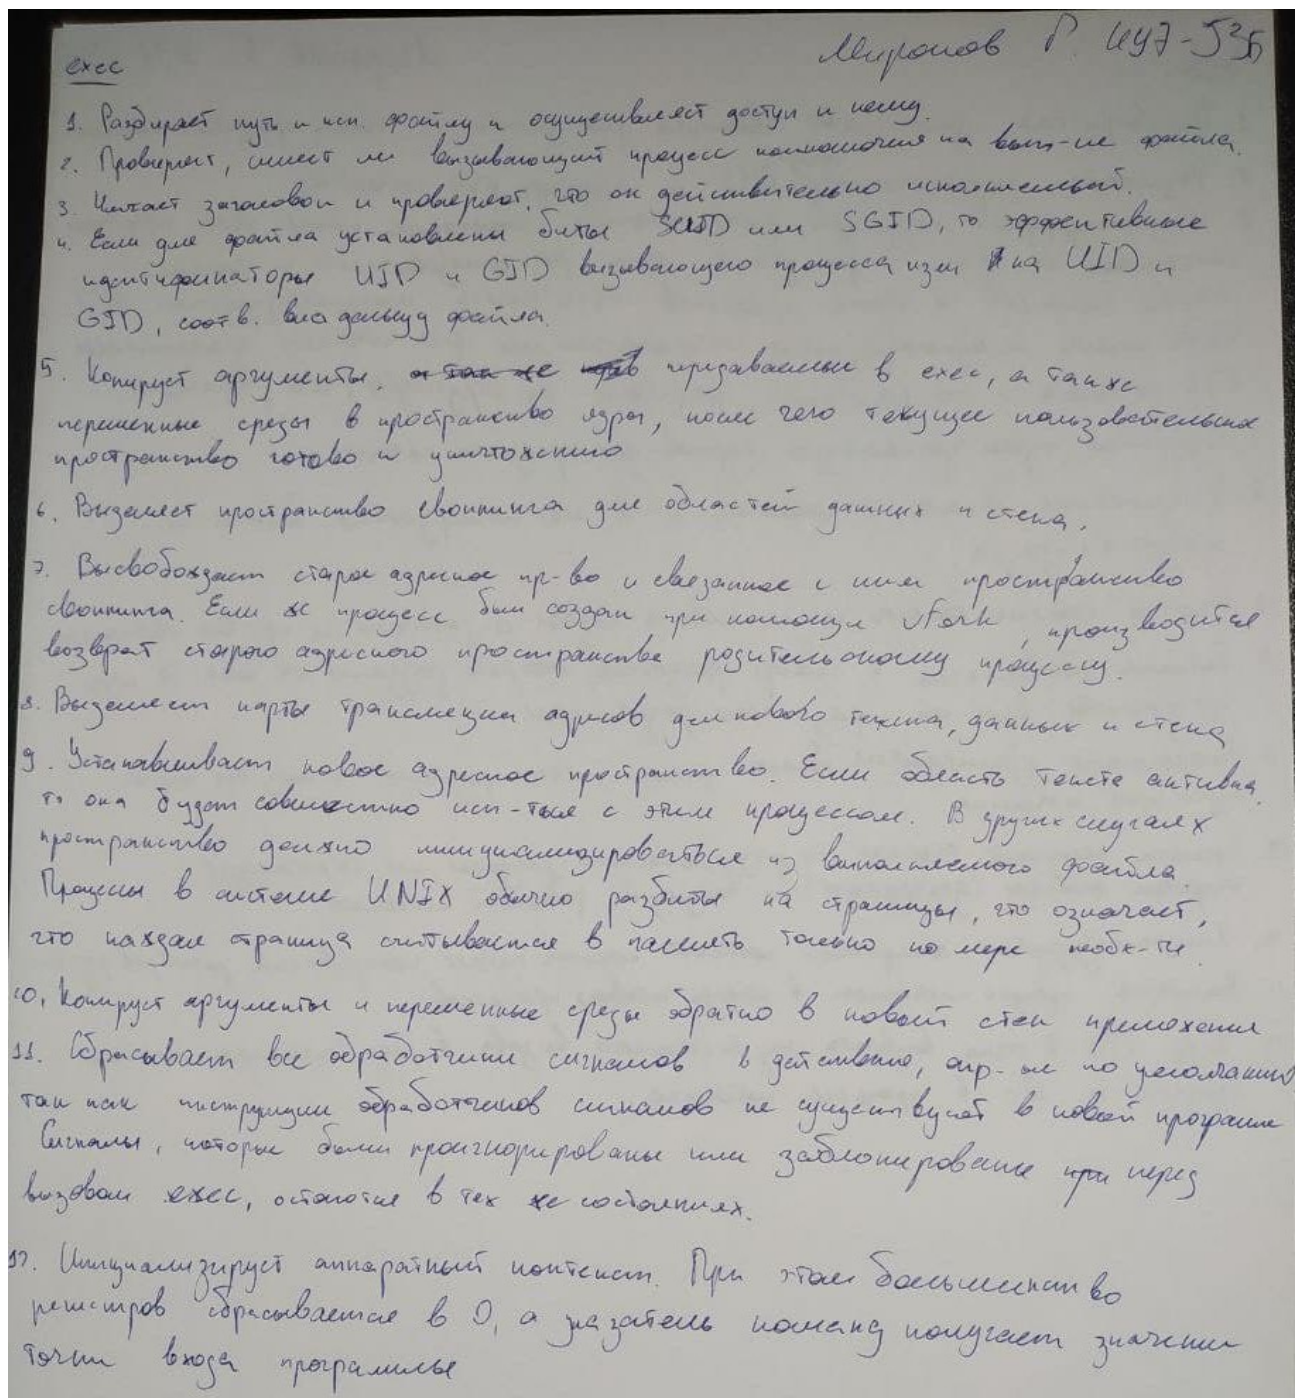 Миронов Г. ИУ7-53Б
exec
1. Разбирает путь к исп. файлу и осуществляет доступ к нему.
2. Проверяет, имеет ли вызывающий процесс полномочия на вып-ие файла.
3. Читает заголовок и проверяет, что он действительно исполняемый.
4. Если для файла установлены биты SUID или SGID, то эффективные
идентификаторы UID и GID вызывающего процесса изм на UID и
GID, соотв. владельцу файла.
5. Копирует аргументы, передаваемые в exec, а также
переменные среды в пространство ядра, после чего текущее пользовательское
пространство готово к уничтожению
6. Выделяет пространство свопинга для областей данных и стека.
7. Высвобождает старое адресное пр-во и связанное с ним пространство
свопинга. Если же процесс был создан при помощи vfork, производится
возврат старого адресного пространства родительскому процессу.
8. Выделяет карты трансляции адресов для нового текста, данных и стека
9. Устанавливает новое адресное пространство. Если область текста активна,
то она будет совместно исп-ться с этим процессом. В других случаях
пространство должно инициализироваться из выполняемого файла.
Процессы в системе UNIX обычно разбиты на страницы, что означает,
что каждая страница считывается в память только по мере необх-ти.
10. Копирует аргументы и переменные среды обратно в новый стек приложения
11. Сбрасывает все обработчики сигналов в действию, опр-ые по умолчанию,
так как инструкции обработчиков сигналов не существует в новой программе
Сигналы, которые были проигнорированы или заблокированы перед
вызовом exec, остаются в тех же состояниях.
12. Инициализирует аппаратный контекст. При этом большинство
регистров сбрасывается в 0, а указатель команд получает значение
точки входа программы